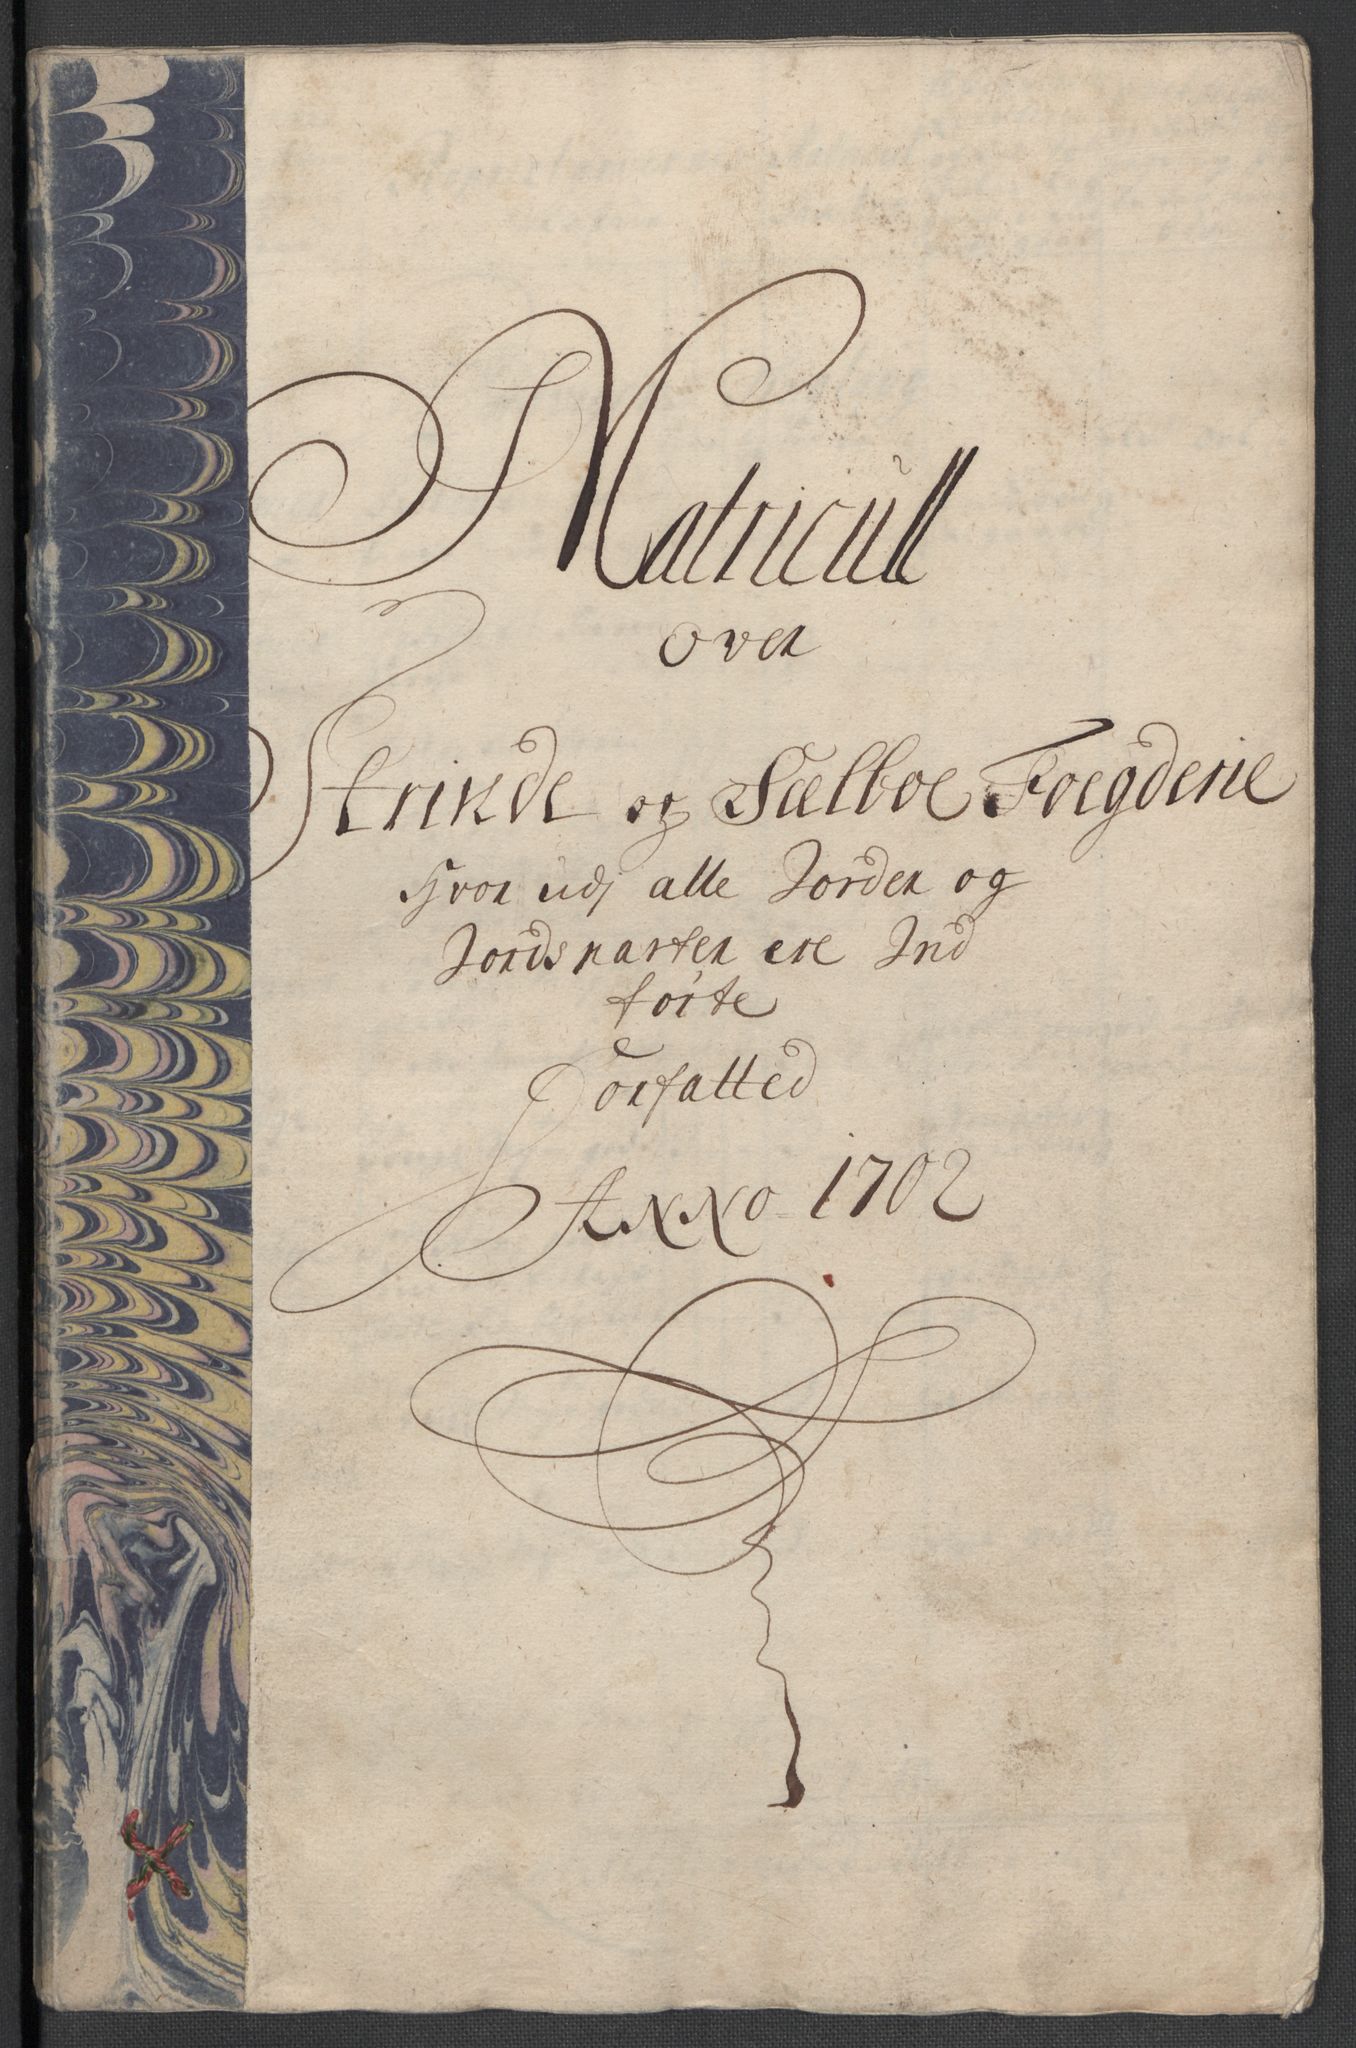 Matricull
over
Strinde og Sælboe Foegderie
Hvor udj alle Jorder og
Jordsparter ere Ind
førte
Forfatted
Anno 1702